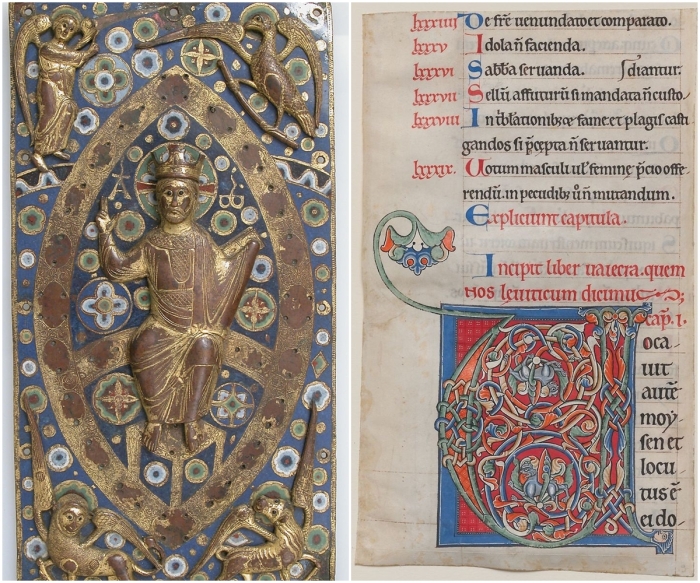 A ω
lxxxiiii De fr̄e uenundato et comparato.
lxxxv Idola n̄ facienda.
lxxxvi Sabb̄a seruanda. diantur.
lxxxvii Sellū affuturū si mandata n̄ custo
lxxxviii In tb̄lationib; fame et plagis casti
gandos si p̄cepta n̄ seruantur.
lxxxix. Uotum masculi ul' femine p̄cio offe
rendū. in pecudib; ū n̄ mutandum.
Expliciunt capitula.
Incipit liber uaiecra. quem
nos leuiticum dicimus;
cap. i.
Uoca
uit
autē
moy
sen et
locu
tus ē
ei do